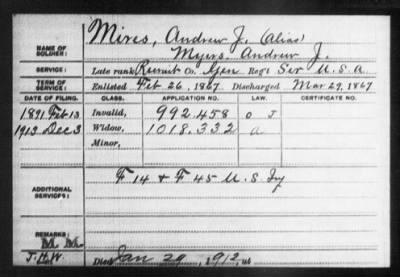 NAME OF SOLDIER: Mires, Andrew J. (Alias)
Myers, Andrew J.
SERVICE: Late rank Recruit Co. Gen Reg't Ser U.S.A.
TERM OF SERVICE: Enlisted Feb 26, 1867 Discharged Mar 29, 1867
DATE OF FILING. CLASS. APPLICATION NO. LAW. CERTIFICATE NO.
1891 Feb 13 Invalid, 992.458 O J
1912 Dec 3 Widow, 1018.332 a
Minor,
ADDITIONAL SERVICES: F 14 & F 45 U.S. Iy
REMARKS: M.M.
J.H.W. Died Jan 29, 1912, at